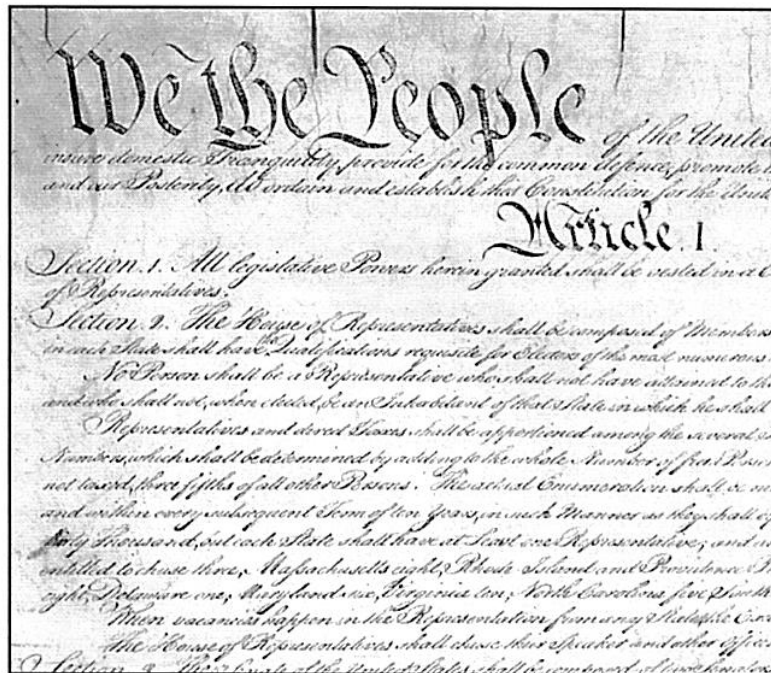 We the People of the United
insure domestic Tranquility, provide for the common defence, promote t
and our Posterity, do ordain and establish this Constitution for the Unite
Article. I.
Section. 1. All legislative Powers herein granted shall be vested in a C
of Representatives.
Section. 2. The House of Representatives shall be composed of Members
in each State shall have the Qualifications requisite for Electors of the most numerous
No Person shall be a Representative who shall not have attained to the
and who shall not, when elected, be an Inhabitant of that State in which he shall
Representatives and direct Taxes shall be apportioned among the several
Numbers, which shall be determined by adding to the whole Number of free Person
not taxed, three fifths of all other Persons. The actual Enumeration shall be m
and within every subsequent Term of ten Years, in such Manner as they shall by
thirty Thousand, but each State shall have at Least one Representative; and
entitled to chuse three, Massachusetts eight, Rhode Island and Providence
eight, Delaware one, Maryland six, Virginia ten, North Carolina five, South
When vacancies happen in the Representation from any State, the Exec
The House of Representatives shall chuse their Speaker and other Office
Section. 3. The Senate of the United States shall be composed of two Senators